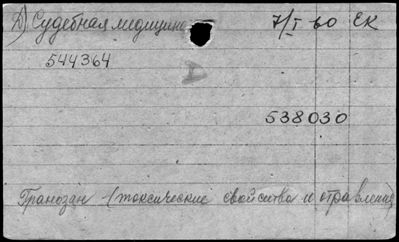 Д) Судебная медицина 7/I 60 ЕК
544364
D
538030
Гранозан (токсические свойства и отравления)